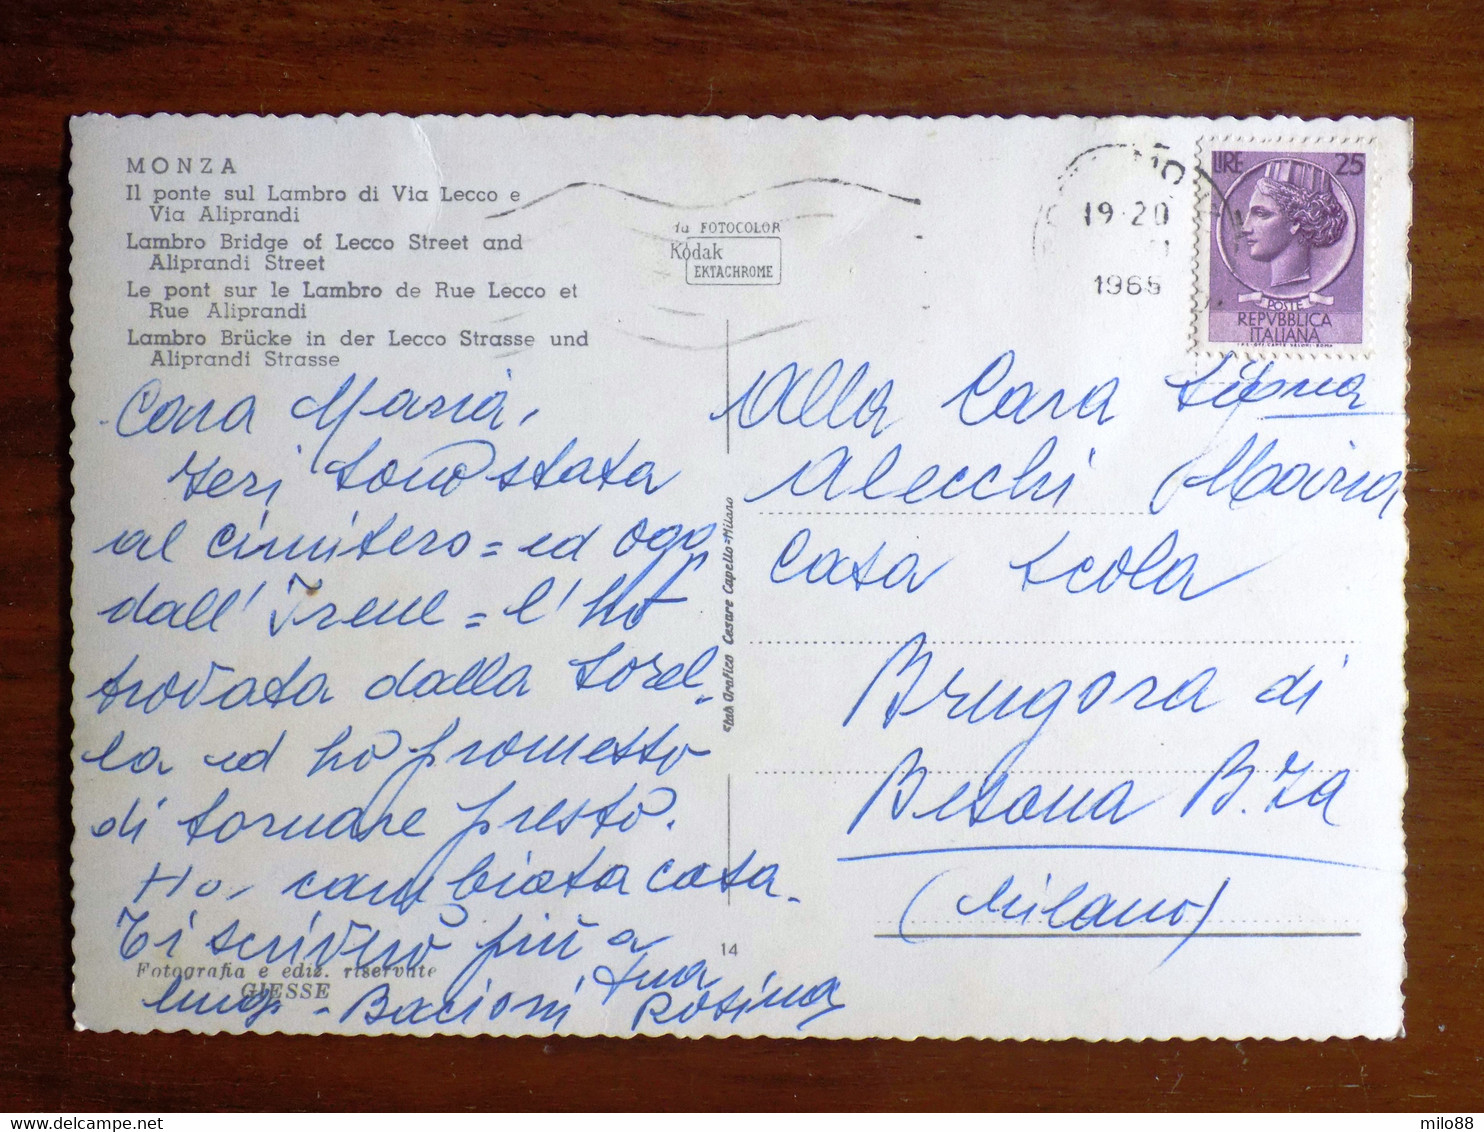 MONZA
Il ponte sul Lambro di Via Lecco e
Via Aliprandi
Lambro Bridge of Lecco Street and
Aliprandi Street
Le pont sur le Lambro de Rue Lecco et
Rue Aliprandi
Lambro Brücke in der Lecco Strasse und
Aliprandi Strasse
da FOTOCOLOR
Kodak
EKTACHROME
19-20
1965
LIRE 25
POSTE
REPVBBLICA
ITALIANA
Cara Maria,
Ieri sono stata
al cimitero = ed oggi
dall'Irene = l'ho
trovata dalla sorel-
la ed ho promesso
di tornare presto.
Ho cambiata casa.
Ti scriverò più a
lungo - Bacioni tua
Rosina
Fotografia e ediz. riservate
GIESSE
14
Stab. Grafico Cesare Capello = Milano
Alla Cara
Alecchi Maria
Casa Scola
Brugora di
Besana B.za
(Milano)
milo88